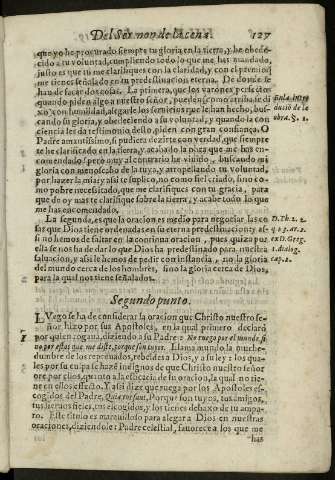 Del Sermon de la cena. 127
que yo he procurado siempre tu gloria en la tierra, y he obede-
cido a tu voluntad, cumpliendo todo lo que me has mandado,
justo es que tu me clarifiques con la claridad, y con el premio q̃
me tienes señalado en tu predestinacion eterna. De donde se
han de sacar dos cosas. La primera, que los varones perfectos
quando piden algo a nuestro señor, pueden (como arriba se di-
xo) con humildad, alegarle los seruicios que le han hecho, bus-
cando su gloria, y obedeciendo a su voluntad, y quando la con
ciencia les da testimonio desto, piden con gran confiança. O
Padre amantissimo, si pudiera dezirte con verdad, que siempre
te he clarificado en la tierra, y acabado la obra que me has en-
comendado! pero muy al contrario he viuido, buscando mi
gloria con menoscabo de la tuya, y atropellando tu voluntad,
por hazer la mia; y assi te suplico, no como fiel criado, sino co-
mo pobre necessitado, que me clarifiques con tu gracia, para
que de oy mas te clarifique sobre la tierra, y acabe todo lo que
me has encomendado.
La segunda, es que la oracion es medio para negociar las co
sas que Dios tiene ordenadas en su eterna predestinacion: y as-
si no hemos de faltar en la continua oracion, pues quiça por
ella se nos ha de dar lo que Dios ha predestinado para nuestra
saluacion, y assi le hemos de pedir con instancia, no la gloria
del mundo cerca de los hombres, sino la gloria cerca de Dios,
para la qual nos tiene señalados.
En la intro
ducíõ de la
obra. §. 1.
D. Th. 2. 2.
q 83. ar. 2.
ex D. Greg.
1. dialog.
cap. 8.
Segundo punto.
LVego se ha de considerar la oracion que Christo nuestro se-
ñor hizo por sus Apostoles, en la qual primero declarò
por quien rogaua, diziendo a su Padre: No ruego por el mundo, si
no por estos que me diste, porque son tuyos. Llama mundo la muche-
dumbre de los reprouados, rebeldes a Dios, y a su ley: los qua-
les por su culpa se hazẽ indignos de que Christo nuestro señor
ore por ellos, quanto a la eficacia de su oracion, la qual no tie-
ne en ellos efecto. Y assi dize que ruega por los Apostoles es-
cogidos del Padre, Quia tui sunt, Porque son tuyos, tus amigos,
tus sieruos fieles, tus escogidos, y los tienes debaxo de tu ampa-
ro. Este titulo es marauilloso para alegar a Dios en nuestras
oraciones, diziendole: Padre celestial, fauorece a los que me
has